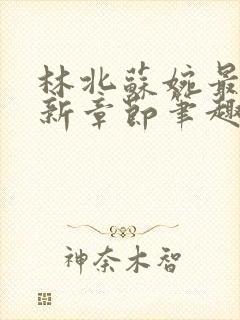 林北蘇婉最
新章節筆趣
神奈木智